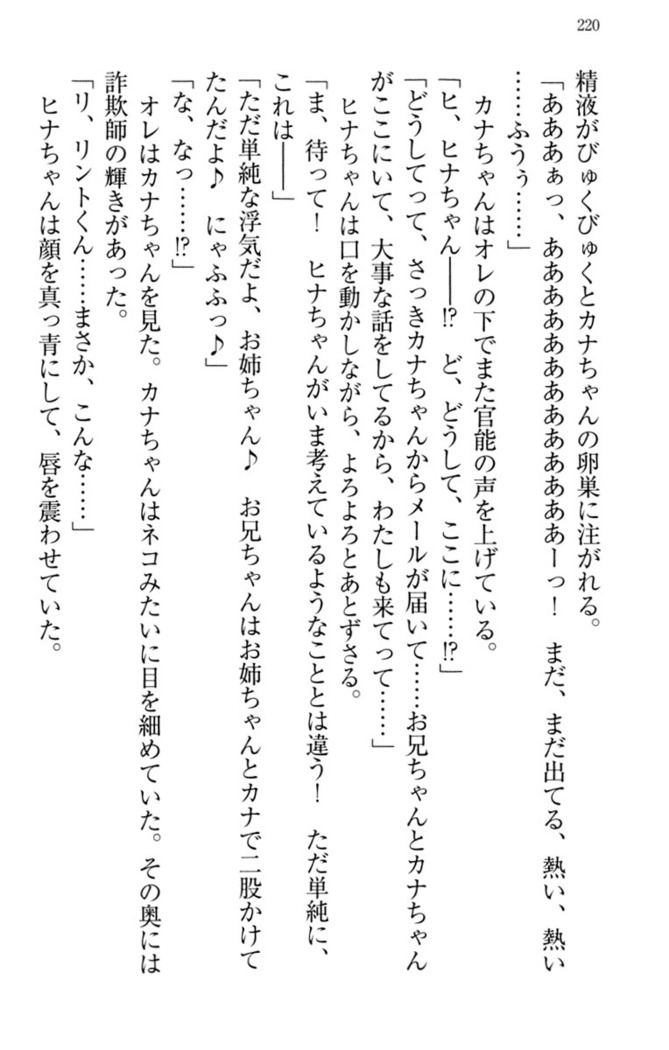 220
精液がびゅくびゅくとカナちゃんの卵巣に注がれる。
「あああぁっ、ああああああああああああーっ！　まだ、まだ出てる、熱い、熱い
……ふうぅ……」
カナちゃんはオレの下でまた官能の声を上げている。
「ヒ、ヒナちゃん――!?　ど、どうして、ここに……!?」
「どうしてって、さっきカナちゃんからメールが届いて……お兄ちゃんとカナちゃん
がここにいて、大事な話をしてるから、わたしも来てって……」
ヒナちゃんは口を動かしながら、よろよろとあとずさる。
「ま、待って！　ヒナちゃんがいま考えているようなこととは違う！　ただ単純に、
これは――」
「ただ単純な浮気だよ、お姉ちゃん♪　お兄ちゃんはお姉ちゃんとカナで二股かけて
たんだよ♪　にゃふふっ♪」
「な、なっ……!?」
オレはカナちゃんを見た。カナちゃんはネコみたいに目を細めていた。その奥には
詐欺師の輝きがあった。
「リ、リントくん……まさか、こんな……」
ヒナちゃんは顔を真っ青にして、唇を震わせていた。